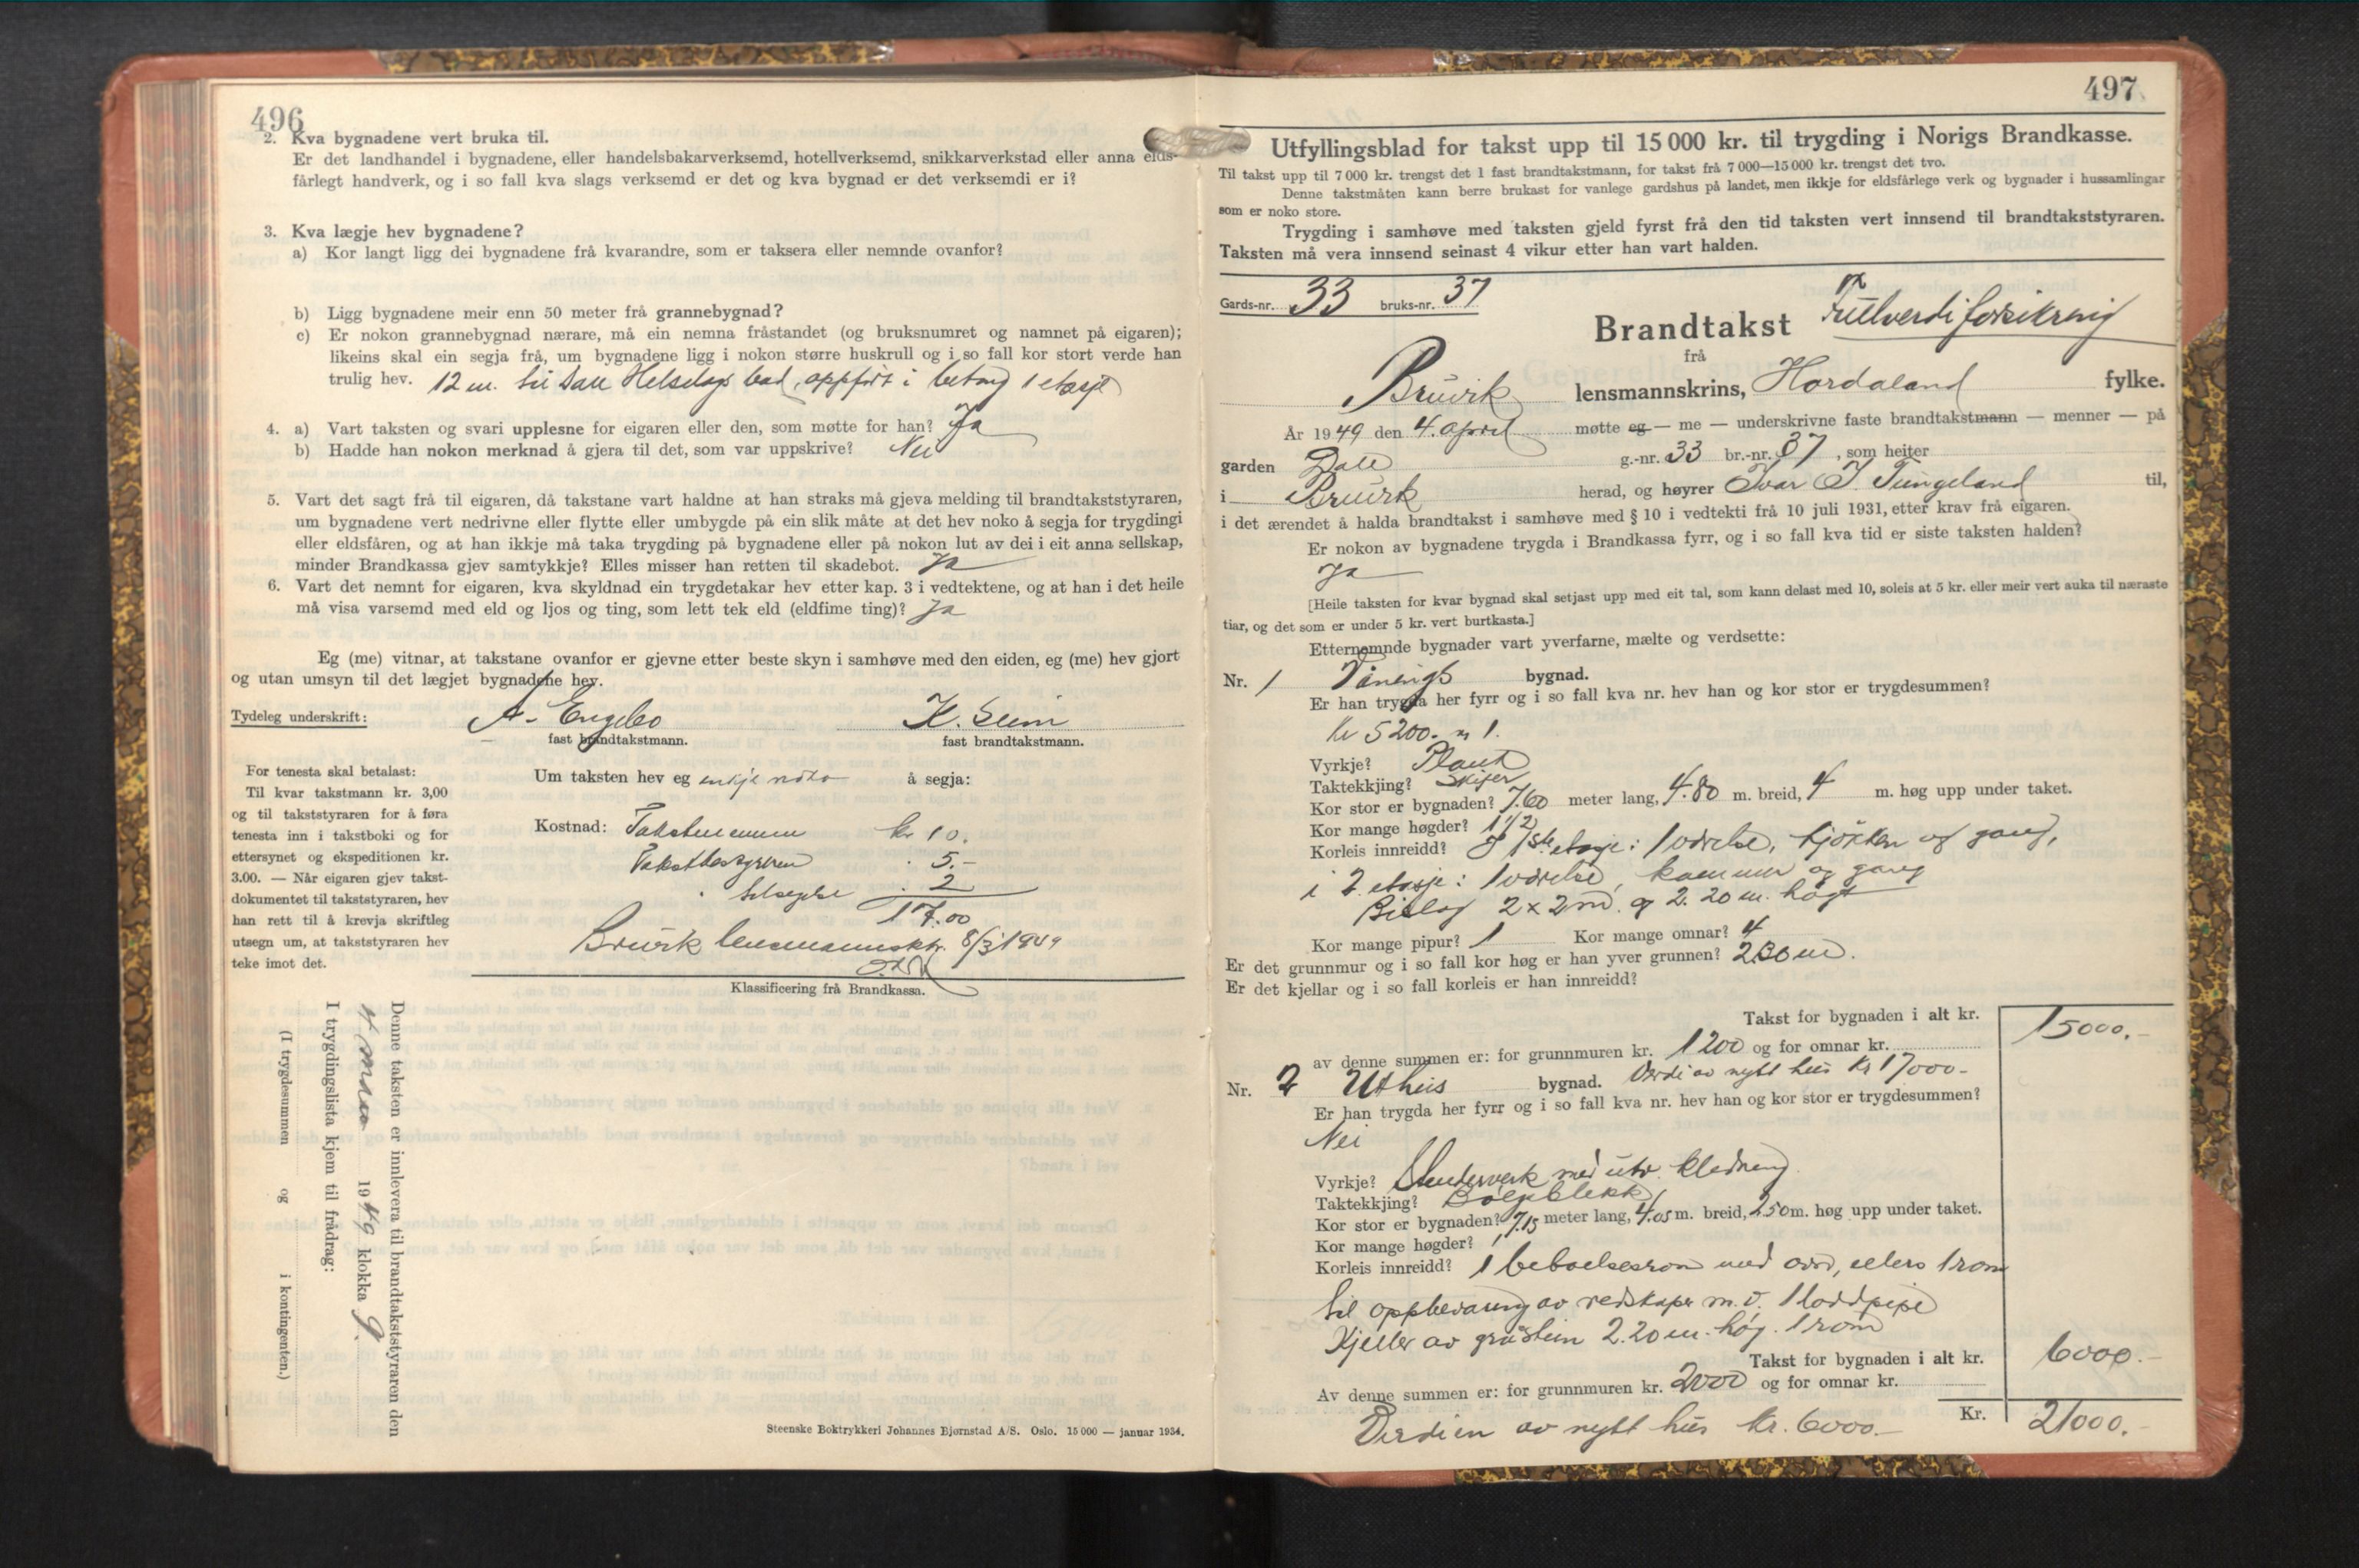 496
2. Kva bygnadene vert bruka til.
Er det landhandel i bygnadene, eller handelsbakarverksemd, hotellverksemd, snikkarverkstad eller anna elds-
fårlegt handverk, og i so fall kva slags verksemd er det og kva bygnad er det verksemdi er i?
3. Kva lægje hev bygnadene?
a) Kor langt ligg dei bygnadene frå kvarandre, som er taksera eller nemnde ovanfor?
b) Ligg bygnadene meir enn 50 meter frå grannebygnad?
c) Er nokon grannebygnad nærare, må ein nemna fråstandet (og bruksnumret og namnet på eigaren);
likeins skal ein segja frå, um bygnadene ligg i nokon større huskrull og i so fall kor stort verde han
trulig hev. 12 m. til Dale Helselags bad, oppført i betong 1 etasje
4. a) Vart taksten og svari upplesne for eigaren eller den, som møtte for han? Ja
b) Hadde han nokon merknad å gjera til det, som var uppskrive? Nei
5. Vart det sagt frå til eigaren, då takstane vart haldne at han straks må gjeva melding til brandtakststyraren,
um bygnadene vert nedrivne eller flytte eller umbygde på ein slik måte at det hev noko å segja for trygdingi
eller eldsfåren, og at han ikkje må taka trygding på bygnadene eller på nokon lut av dei i eit anna sellskap,
minder Brandkassa gjev samtykkje? Elles misser han retten til skadebot. Ja
6. Vart det nemnt for eigaren, kva skyldnad ein trygdetakar hev etter kap. 3 i vedtektene, og at han i det heile
må visa varsemd med eld og ljos og ting, som lett tek eld (eldfime ting)? Ja
Eg (me) vitnar, at takstane ovanfor er gjevne etter beste skyn i samhøve med den eiden, eg (me) hev gjort
og utan umsyn til det lægjet bygnadene hev.
Tydeleg underskrift: A. Engebo K. Seim
fast brandtakstmann. fast brandtakstmann.
For tenesta skal betalast:
Til kvar takstmann kr. 3,00
og til takststyraren for å føra
tenesta inn i takstboki og for
ettersynet og ekspeditionen kr.
3.00. — Når eigaren gjev takst-
dokumentet til takststyraren, hev
han rett til å krevja skriftleg
utsegn um, at takststyraren hev
teke imot det.
Um taksten hev eg å segja:
Kostnad: Takstmennene kr 10.
Takstbestyreren " 5.-
" 2
17.00
Bruvik lensmannsktr. 8/3 1949
Klassificering frå Brandkassa.
Denne taksten er innlevera til brandtakststyraren den
4 mars 1949 klokka 9.
I trygdingslista kjem til frådrag:
(I trygdesummen og i kontingenten.)
Steenske Boktrykkeri Johannes Bjørnstad A/S. Oslo. 15 000 — januar 1934.
497
Utfyllingsblad for takst upp til 15 000 kr. til trygding i Norigs Brandkasse.
Til takst upp til 7 000 kr. trengst det 1 fast brandtakstmann, for takst frå 7 000—15 000 kr. trengst det tvo.
Denne takstmåten kann berre brukast for vanlege gardshus på landet, men ikkje for eldsfårlege verk og bygnader i hussamlingar
som er noko store.
Trygding i samhøve med taksten gjeld fyrst frå den tid taksten vert innsend til brandtakststyraren.
Taksten må vera innsend seinast 4 vikur etter han vart halden.
Gards-nr. 33 bruks-nr. 37
Brandtakst Fullverdiforsikring
frå
Bruvik lensmannskrins, Hordaland fylke.
År 1949 den 4. april møtte eg — me — underskrivne faste brandtakstmann — menner — på
garden Dale g.-nr. 33 br.-nr. 37, som heiter
i Bruvik herad, og høyrer Ivar J. Tungeland til,
i det ærendet å halda brandtakst i samhøve med § 10 i vedtekti frå 10 juli 1931, etter krav frå eigaren.
Er nokon av bygnadene trygda i Brandkassa fyrr, og i so fall kva tid er siste taksten halden?
Ja
[Heile taksten for kvar bygnad skal setjast upp med eit tal, som kann delast med 10, soleis at 5 kr. eller meir vert auka til næraste
tiar, og det som er under 5 kr. vert burtkasta.]
Etternemnde bygnader vart yverfarne, mælte og verdsette:
Nr. 1 Vånings bygnad.
Er han trygda her fyrr og i so fall kva nr. hev han og kor stor er trygdesummen?
kr 5200.- n 1.
Vyrkje? Plank
Taktekkjing? Skifer
Kor stor er bygnaden? 7.60 meter lang, 4.80 m. breid, 4 m. høg upp under taket.
Kor mange høgder? 1 1/2
Korleis innreidd? I 1ste etasje: 1 værelse, kjøkken og gang,
i 2. etasje: 1 værelse, kammer og gang
Bislag 2 x 2 m. og 2.20 m. høgt
Kor mange pipur? 1 Kor mange omnar? 4
Er det grunnmur og i so fall kor høg er han yver grunnen? 2.30 m.
Er det kjellar og i so fall korleis er han innreidd?
Takst for bygnaden i alt kr. 15000.-
av denne summen er: for grunnmuren kr. 1200 og for omnar kr.
Nr. 2 Uthus bygnad. Verdi av nytt hus kr 17000.-
Er han trygda her fyrr og i so fall kva nr. hev han og kor stor er trygdesummen?
Nei
Vyrkje? Stenderverk med utv. kledning
Taktekkjing? Bølgeblekk
Kor stor er bygnaden? 7.15 meter lang, 4.05 m. breid, 2.50 m. høg upp under taket.
Kor mange høgder? 1
Korleis innreidd? 1 beboelsesrom med ovn, ellers 1 rom
til oppbevaring av redskaper m.v. 1 loddpipe
Kjeller av gråstein 2.20 m. høg. 1 rom
Takst for bygnaden i alt kr. 6000.-
Av denne summen er: for grunnmuren kr. 2000 og for omnar kr.
Kr. 21000.-
Verdien av nytt hus kr. 6000.-